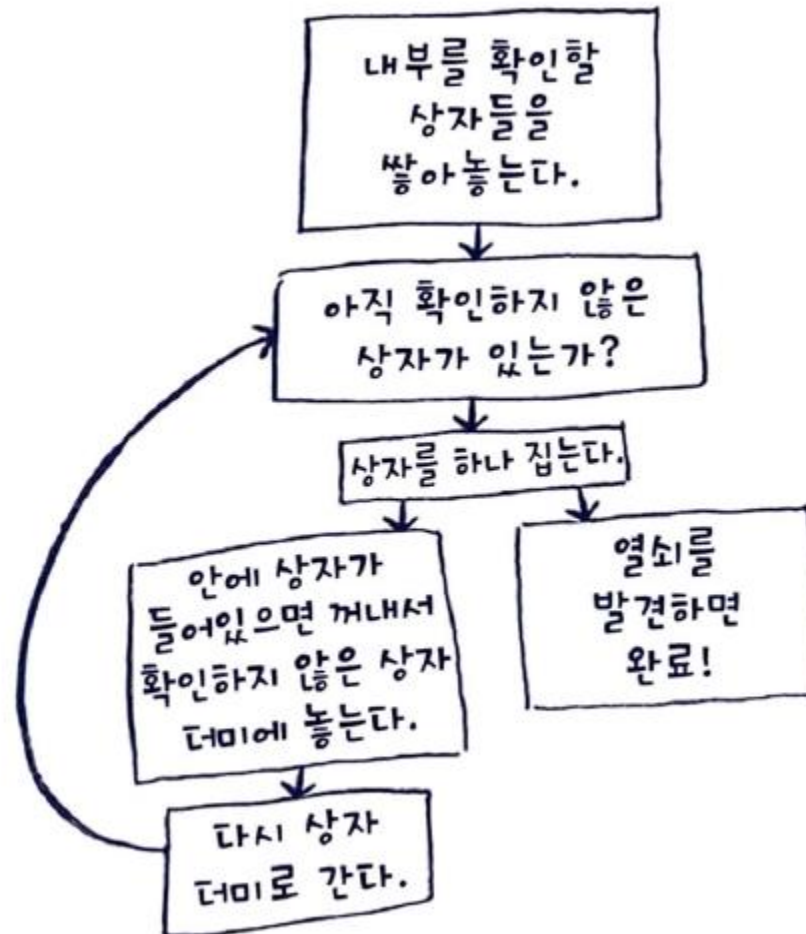 내부를 확인할
상자들을
쌓아놓는다.
아직 확인하지 않은
상자가 있는가?
상자를 하나 집는다.
안에 상자가
들어있으면 꺼내서
확인하지 않은 상자
더미에 놓는다.
열쇠를
발견하면
완료!
다시 상자
더미로 간다.